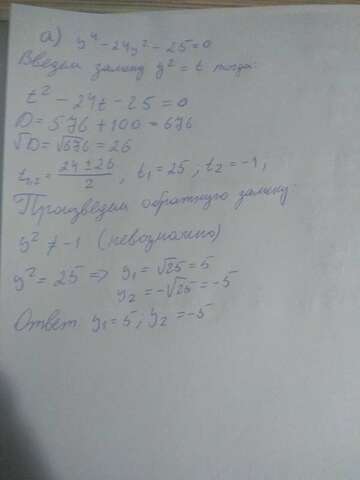 а) y⁴ - 24y² - 25 = 0
Введем замену y² = t тогда:
t² - 24t - 25 = 0
D = 576 + 100 = 676
√D = √676 = 26
t₁,₂ = (24 ± 26)/2 , t₁ = 25 ; t₂ = -1 ;
Произведем обратную замену:
y² ≠ -1 (невозможно)
y² = 25 ⇒ y₁ = √25 = 5
y₂ = -√25 = -5
Ответ y₁ = 5 ; y₂ = -5